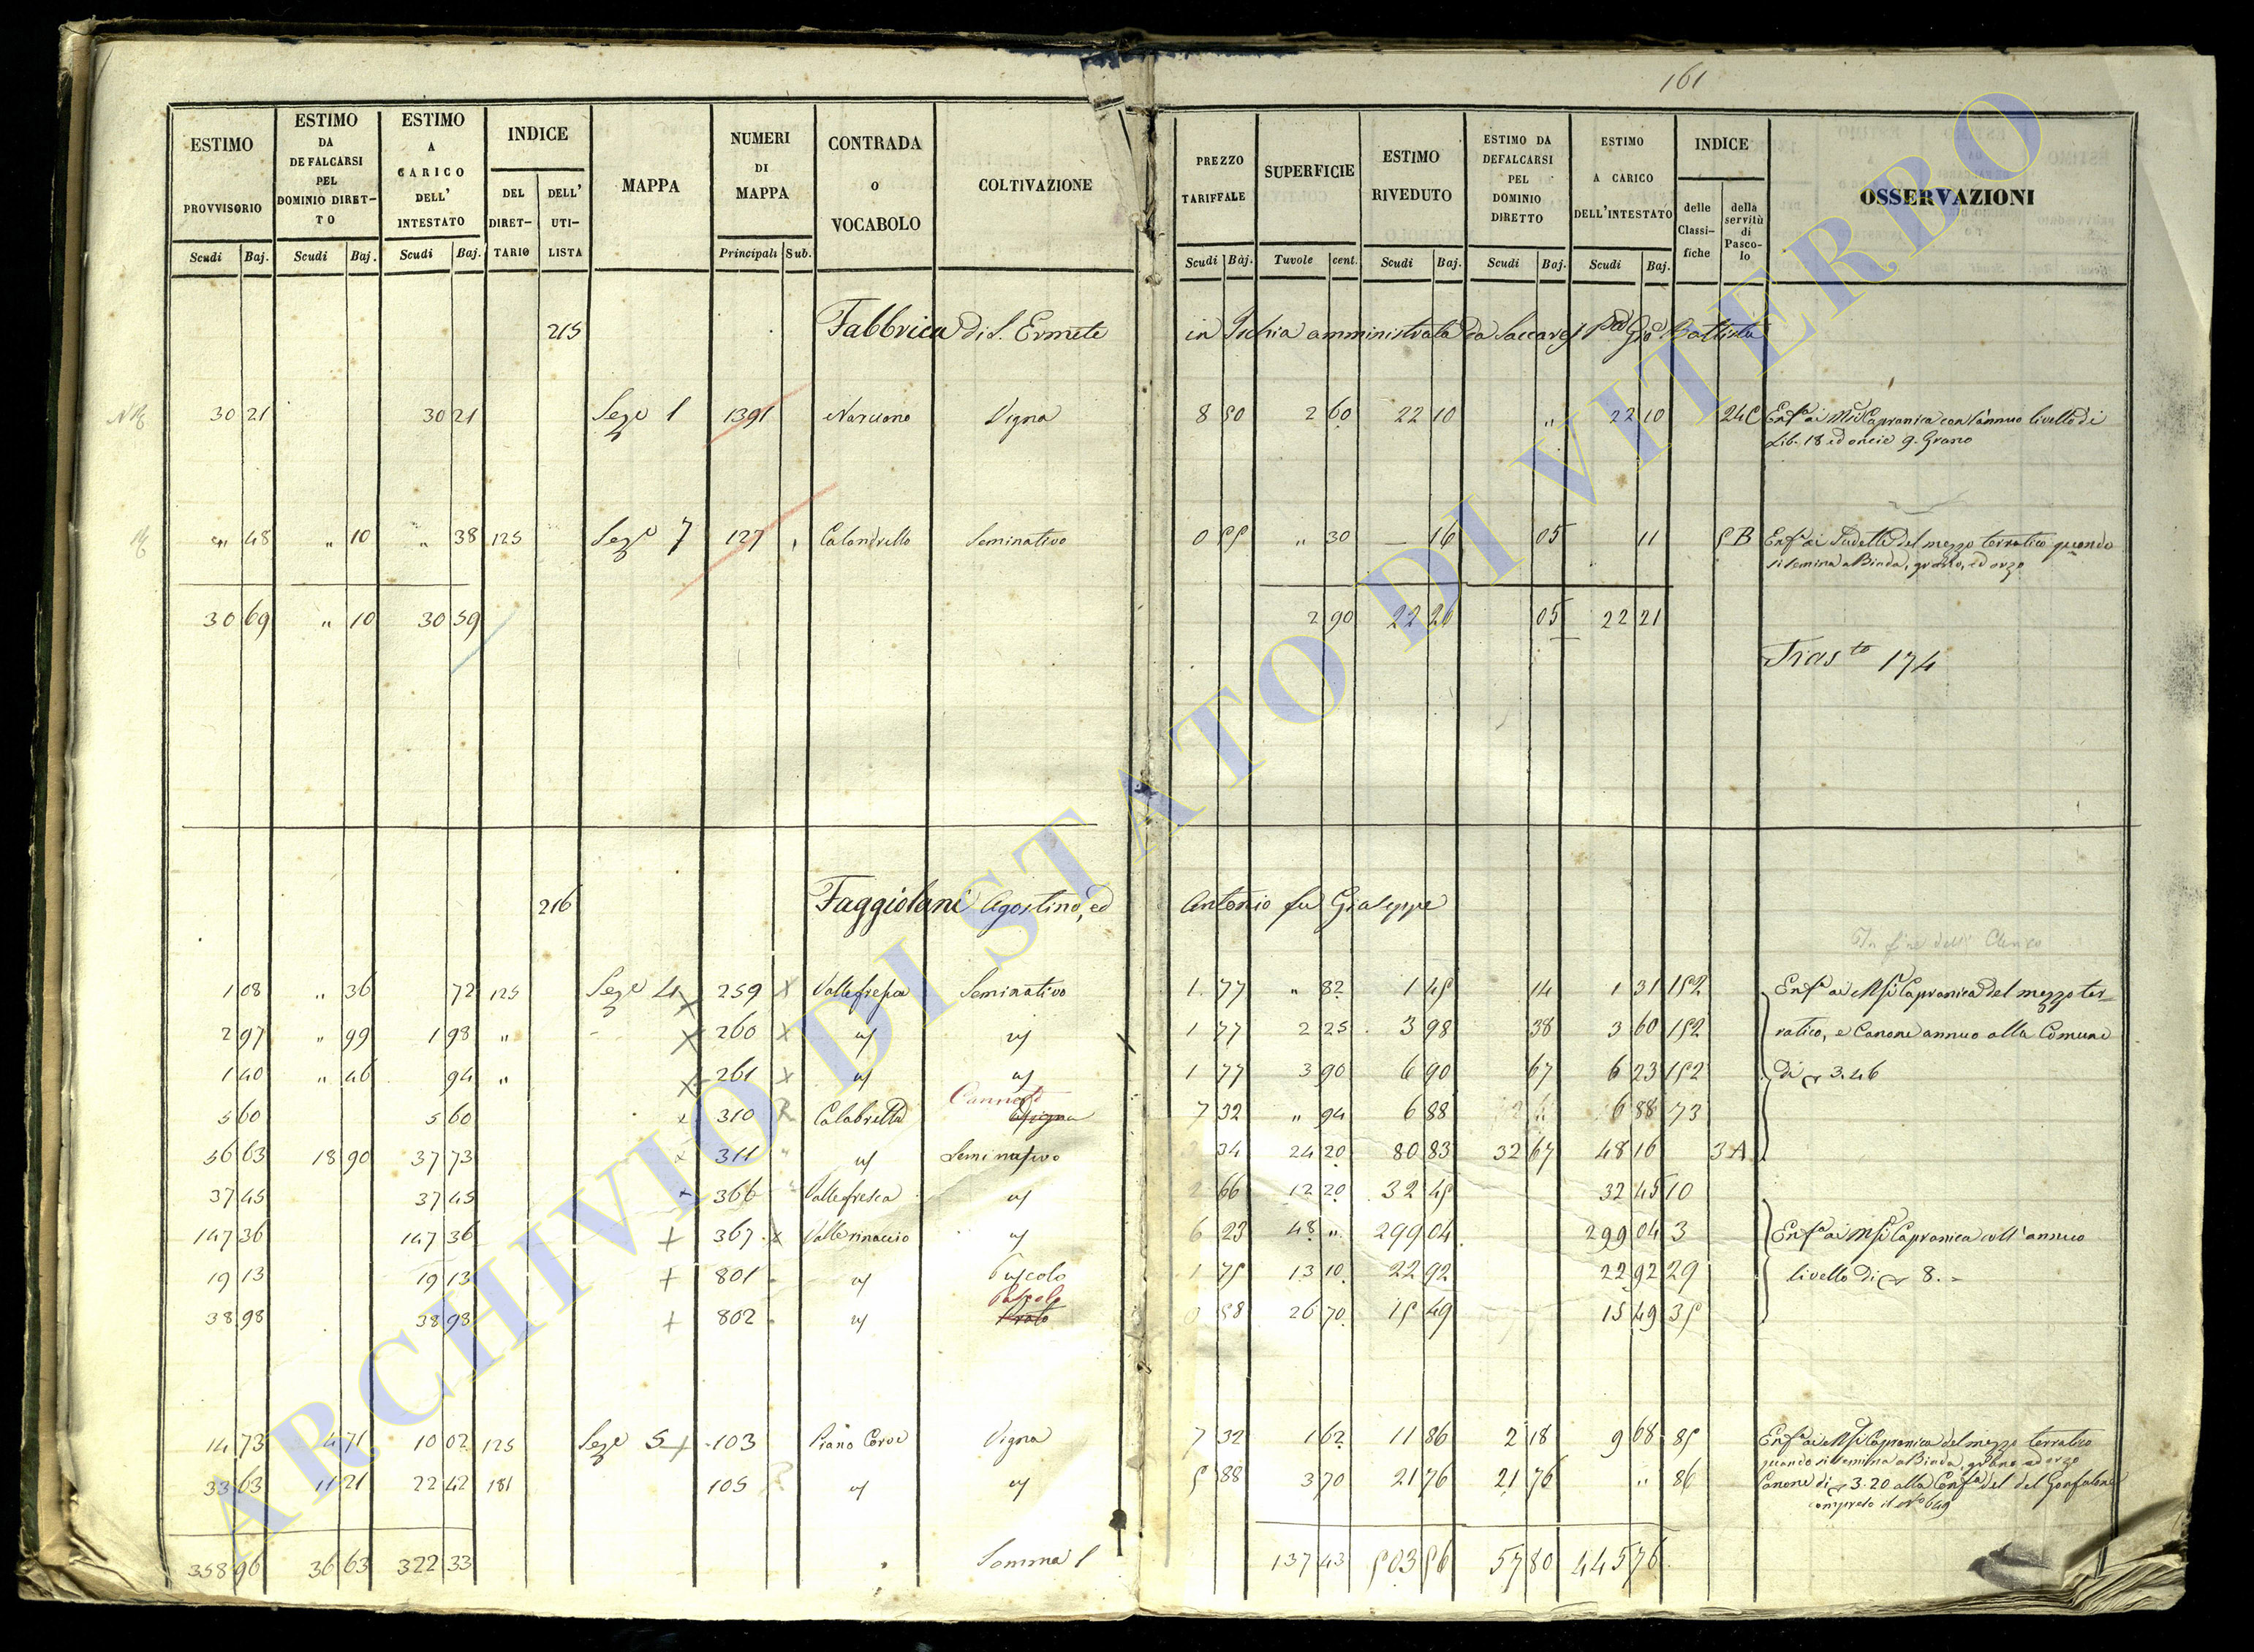 161
ESTIMO PROVVISORIO Scudi Baj.
ESTIMO DA DEFALCARSI PEL DOMINIO DIRETTO Scudi Baj.
ESTIMO A CARICO DELL' INTESTATO Scudi Baj.
INDICE DEL DIRETTARIO DELL' UTILISTA
MAPPA
NUMERI DI MAPPA Principali Sub.
CONTRADA O VOCABOLO
COLTIVAZIONE
PREZZO TARIFFALE Scudi Baj.
SUPERFICIE Tavole cent.
ESTIMO RIVEDUTO Scudi Baj.
ESTIMO DA DEFALCARSI PEL DOMINIO DIRETTO Scudi Baj.
ESTIMO A CARICO DELL'INTESTATO Scudi Baj.
INDICE delle Classifiche della servitù di Pascolo
OSSERVAZIONI
215 Fabbrica di S. Ermete in Ischia amministrata da Saccarej Gio Battista
30 21 30 21 Sez.e 1 1391 Vigna 8 50 2 60 22 10 " 22 10 24C Enf.a ai Capranica con l'annuo livello di
Lib. 18 ed oncie 9. Grano
" 48 " 10 " 38 125 Sez.e 7 127 Calandrello Seminativo 0 55 " 30 16 05 11 5B Enf.a ai Sudetti del mezzo terratico quando
si semina a Biada, grano, ed orzo
30 69 " 10 30 59 2 90 22 26 05 22 21
Tras.to 174
216 Faggiolani Agostino, ed Antonio fu Giuseppe
In fine dell' Elenco
1 08 " 36 72 125 Sez.e 4 259 Seminativo 1 77 " 82 1 45 14 1 31 152 Enf.a ai Capranica del mezzo ter=
2 97 " 99 1 98 " 260 1 77 2 25 3 98 38 3 60 152 ratico, e Canone annuo alla Comune
1 40 " 46 94 " 261 1 77 3 90 6 90 67 6 23 152 di 3.46
5 60 5 60 310 Calabrella 7 32 " 94 6 88 6 88 73
56 63 18 90 37 73 311 Seminativo 34 24 20 80 83 32 67 48 16 3A
37 45 37 45 366 Vallefresca 2 66 12 20 32 45 32 45 10
147 36 147 36 367 Vallerinaccio 6 23 48 " 299 04 299 04 3 Enf.a ai Capranica coll'annuo
19 13 19 13 801 Pascolo 1 75 13 10 22 92 22 92 29 livello di 8.=
38 98 38 98 802 Pascolo Prato 0 58 26 70 15 49 15 49 35
14 73 4 71 10 02 125 Sez.e 5 103 Piano Vigna 7 32 1 62 11 86 2 18 9 68 85 Enf.a ai Capranica del mezzo terratico
quando si semina a Biada, grano ed orzo
33 63 11 21 22 42 181 105 5 88 3 70 21 76 21 76 " 86 Canone di 3.20 alla Conf.a del del Gonfalone
compreso il N.o 649
358 96 36 63 322 33 Somma 137 43 503 56 57 80 445 76
ARCHIVIO DI STATO DI VITERBO